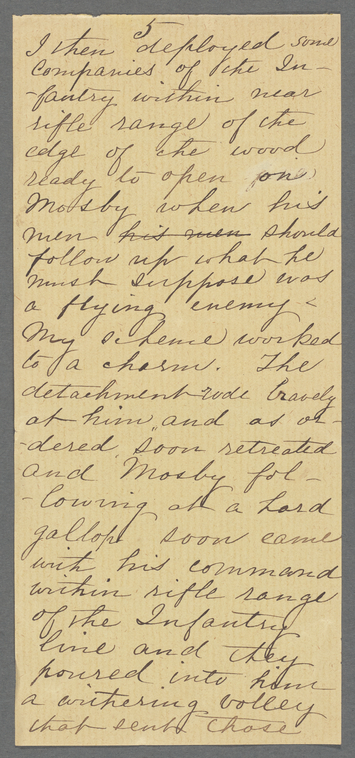 5
I then deployed some
companies of the In-
-fantry within near
rifle range of the
edge of the wood
ready to open on
Mosby when his
men his men should
follow up what he
must suppose was
a flying enemy -
My scheme worked
to a charm. The
detachment rode bravely
at him, and as or-
-dered, soon retreated
and Mosby fol-
-lowing at a hard
gallop soon came
with his command
within rifle range
of the Infantry
line and they
poured into him
a withering volley
that sent those